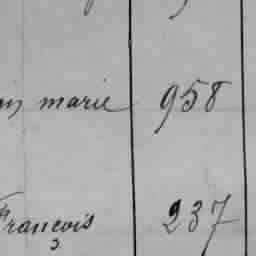 marie 958
Francois 237